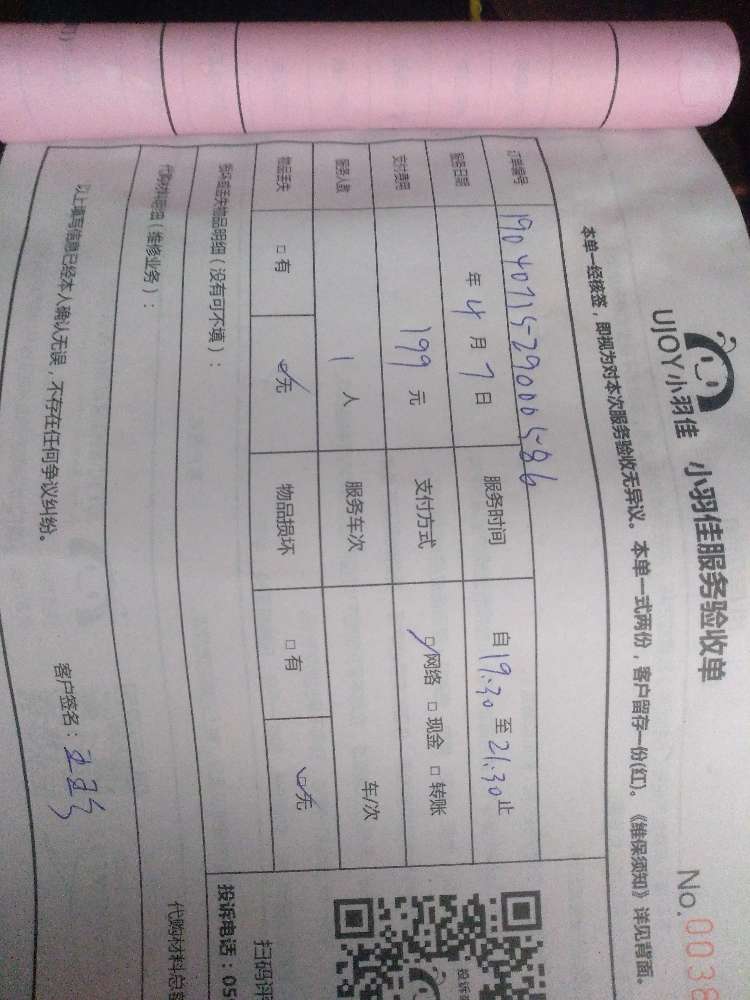 UJOY小羽佳 小羽佳服务验收单
No.0038
本单一经核签，即视为对本次服务验收无异议。本单一式两份，客户留存一份(红)。《维保须知》详见背面。
订单编号 19040715-29000586
服务日期 年 4 月 7 日 服务时间 自 19:30 至 21:30 止
支付费用 199 元 支付方式 □网络 □现金 □转账
服务人数 1 人 服务车次 车/次
物品丢失 □有 □无 物品损坏 □有 □无
损坏或丢失物品明细（没有可不填）：
代购材料明细（维修业务）：
以上填写信息已经本人确认无误，不存在任何争议纠纷。
客户签名：
投诉
扫码评
投诉电话：05
代购材料总